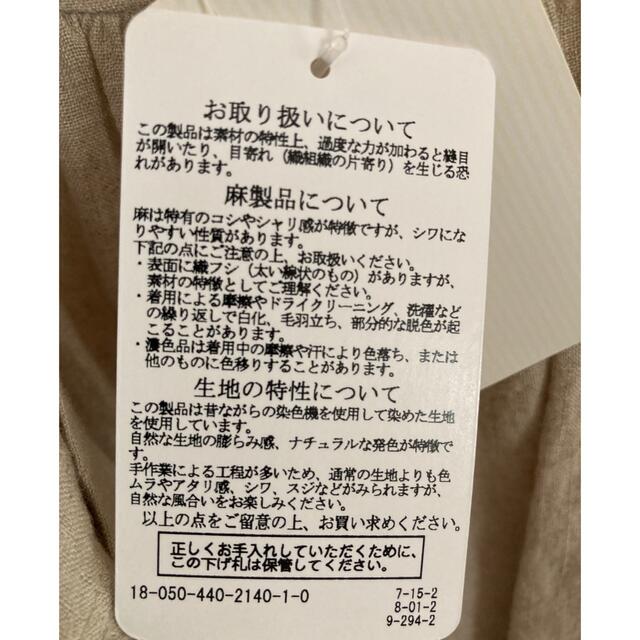 お取り扱いについて
この製品は素材の特性上、過度な力が加わると縫目
が開いたり、目寄れ（織組織の片寄り）を生じる恐
れがあります。
麻製品について
麻は特有のコシやシャリ感が特徴ですが、シワにな
りやすい性質があります。
下記の点にご注意の上、お取扱いください。
・表面に織フシ（太い線状のもの）がありますが、
素材の特徴としてご理解ください。
・着用による摩擦やドライクリーニング、洗濯など
の繰り返しで白化、毛羽立ち、部分的な脱色が起
こることがあります。
・濃色品は着用中の摩擦や汗により色落ち、または
他のものに色移りすることがあります。
生地の特性について
この製品は昔ながらの染色機を使用して染めた生地
を使用しています。
自然な生地の膨らみ感、ナチュラルな発色が特徴で
す。
手作業による工程が多いため、通常の生地よりも色
ムラやアタリ感、シワ、スジなどがみられますが、
自然な風合いをお楽しみください。
以上の点をご留意の上、お買い求めください。
正しくお手入れしていただくために、
この下げ札は保管してください。
18-050-440-2140-1-0
7-15-2
8-01-2
9-294-2